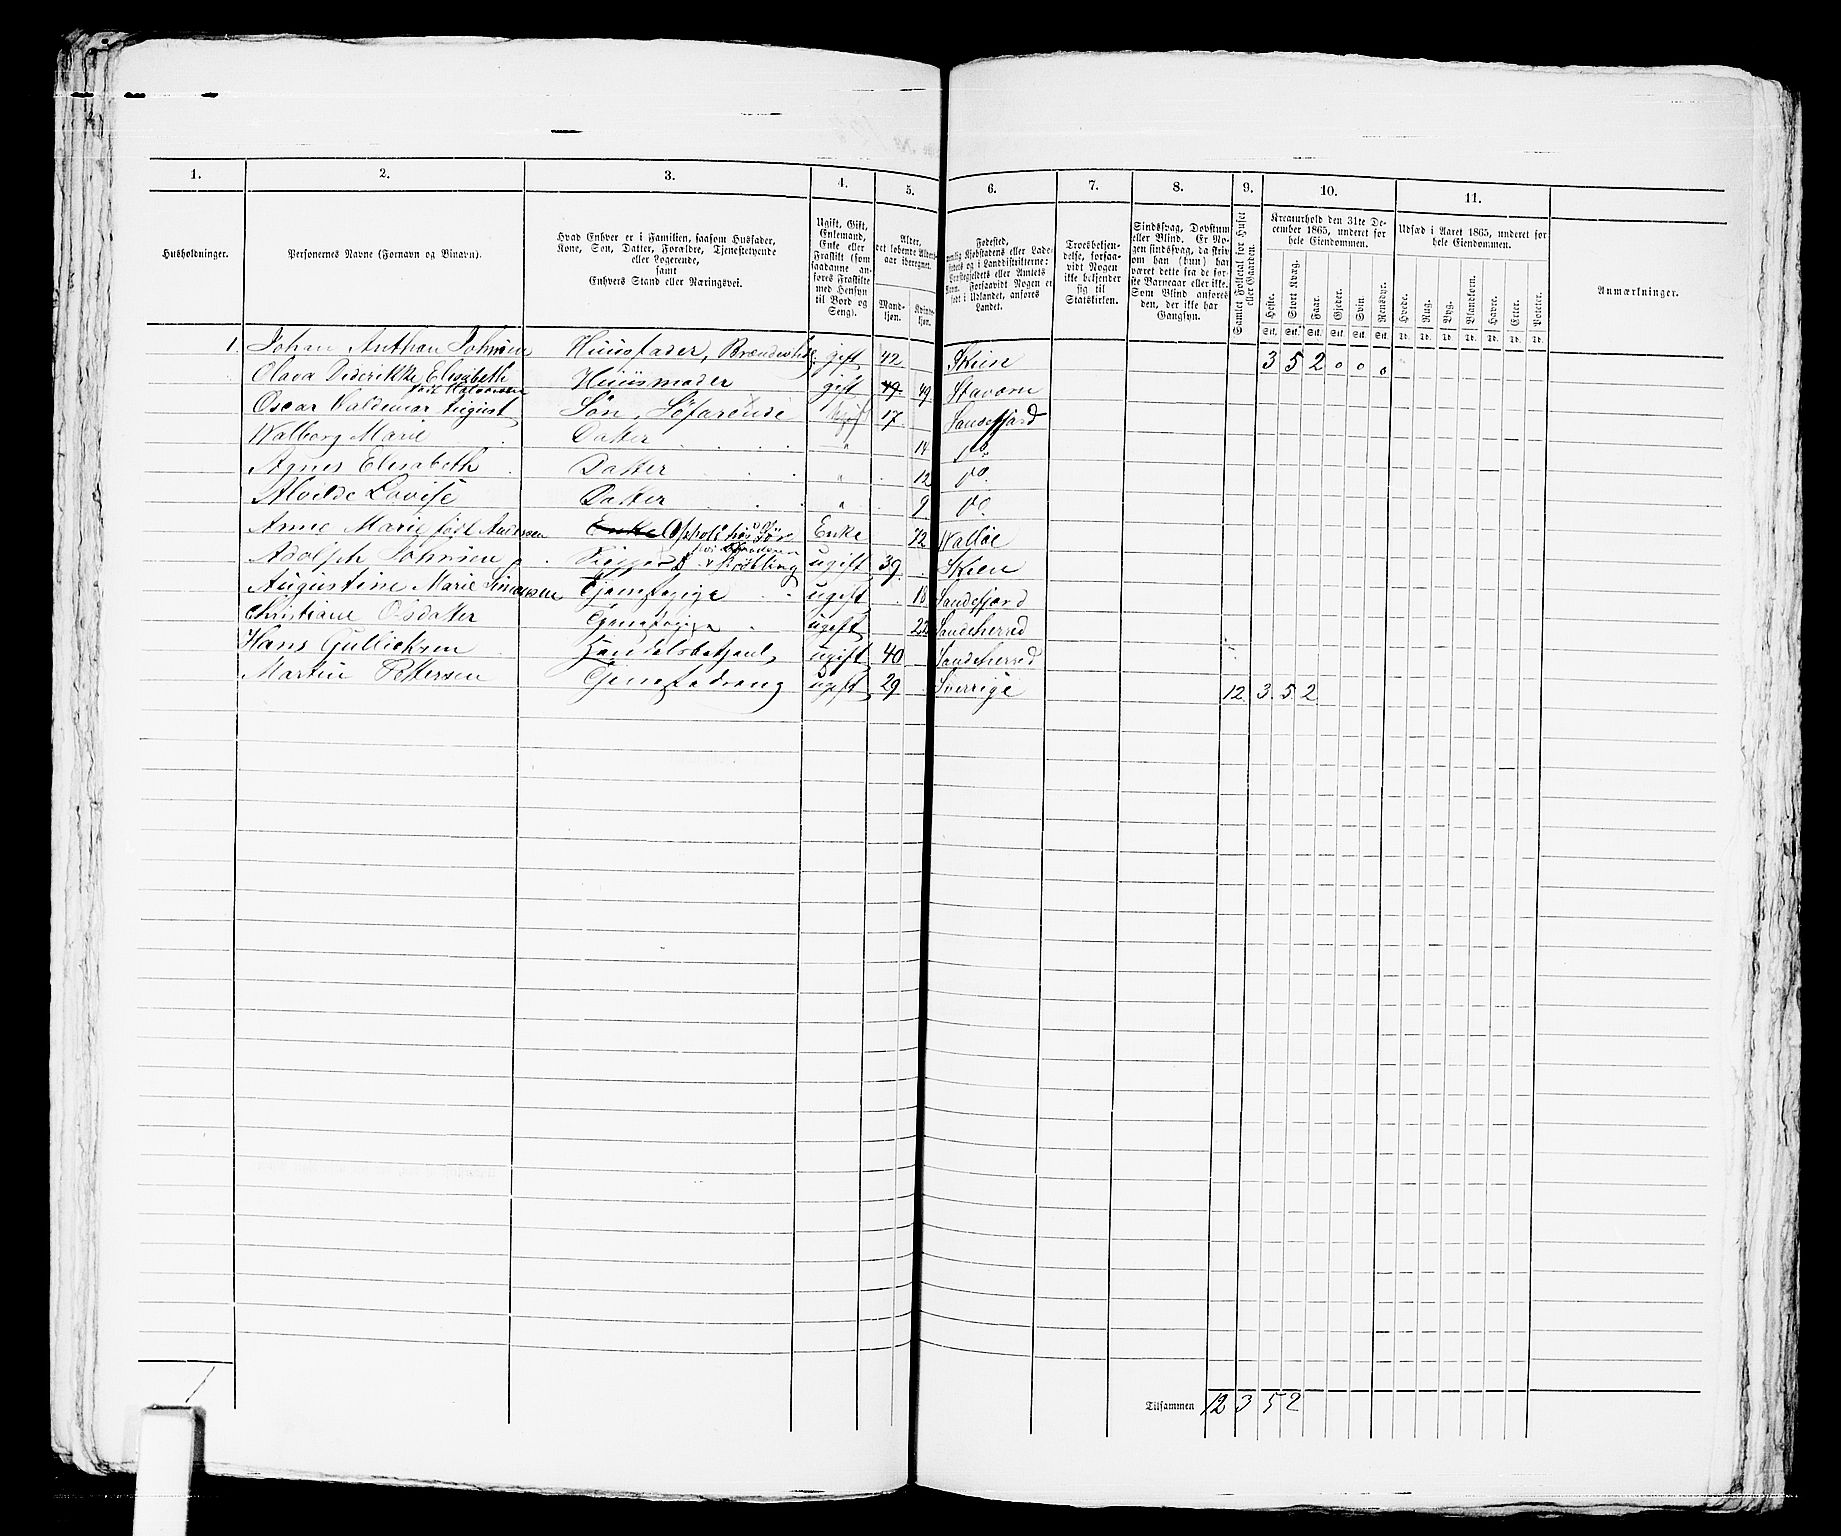 1. 2. 3. 4. 5. 6. 7. 8. 9. 10. 11.
Husholdninger.
Personernes Navne (Fornavn og Binavn).
Hvad Enhver er i Familien, saasom Husfader,
Kone, Søn, Datter, Forældre, Tjenestetyende
eller Logerende,
samt
Enhvers Stand eller Næringsvei.
Ugift, Gift,
Enkemand,
Enke eller
Fraskilt (som
saadanne an-
føres Fraskilte
med Hensyn
til Bord og
Seng).
Alder,
det løbende Alders-
aar iberegnet.
Mand-
kjøn.
Kvinde-
kjøn.
Fødested,
nemlig Kjøbstadens eller Lade-
stedets og i Landdistrikterne:
Præstegjeldets eller Amtets
Navn. Forsaavidt Nogen er
født i Udlandet, anføres
Landet.
Troesbekjen-
delse, forsaa-
vidt Nogen
ikke bekjender
sig til
Statskirken.
Sindssvag, Døvstum
eller Blind. Er No-
gen sindssvag, da skriv
om han (hun) har
været dette fra de før-
ste Barneaar eller ikke.
Som Blind anføres
den, der ikke har
Gangsyn.
Samlet Folketal for Huset
eller Gaarden.
Kreaturhold den 31te De-
cember 1865, underet for
hele Eiendommen.
Heste. Stort Kvæg. Faar. Gjeder. Svin. Rensdyr.
Stk. Stk. Stk. Stk. Stk. Stk.
Udsæd i Aaret 1865, underet for
hele Eiendommen.
Hvede. Rug. Byg. Blandkorn. Havre. Erter. Poteter.
Td. Td. Td. Td. Td. Td. Td.
Anmærkninger.
1. Johan Anthon Johnsen Huusfader, gift 42 Skien 3 5 2 0 0 0
Olava Diderikke Elisabeth Huusmoder gift 49 49 Staværn
født
Oscar Valdemar August Søn, Søfarende Ugift 17 Sandefjord
Walborg Marie Datter " 14 do
Agnes Elisabeth Datter " 12 do.
Alvilde Lovise Datter " 9 do
Anne Marie født Andersen Enke Ophold hos Søn Enke 72 Walløe
Adolph Johnsen ugift 39 Skien
Augustine Marie Simonsen Tjenestepige ugift 18 Sandefjord
Christiane Olsdatter Tjenestepige ugift 22 Sandeherred
Hans Gullicksen Handelsbetjent ugift 40 Sandeherred
Martin Pettersen Tjenestedreng ugift 29 Sverrige 12 3 5 2
1
Tilsammen 12 3 5 2